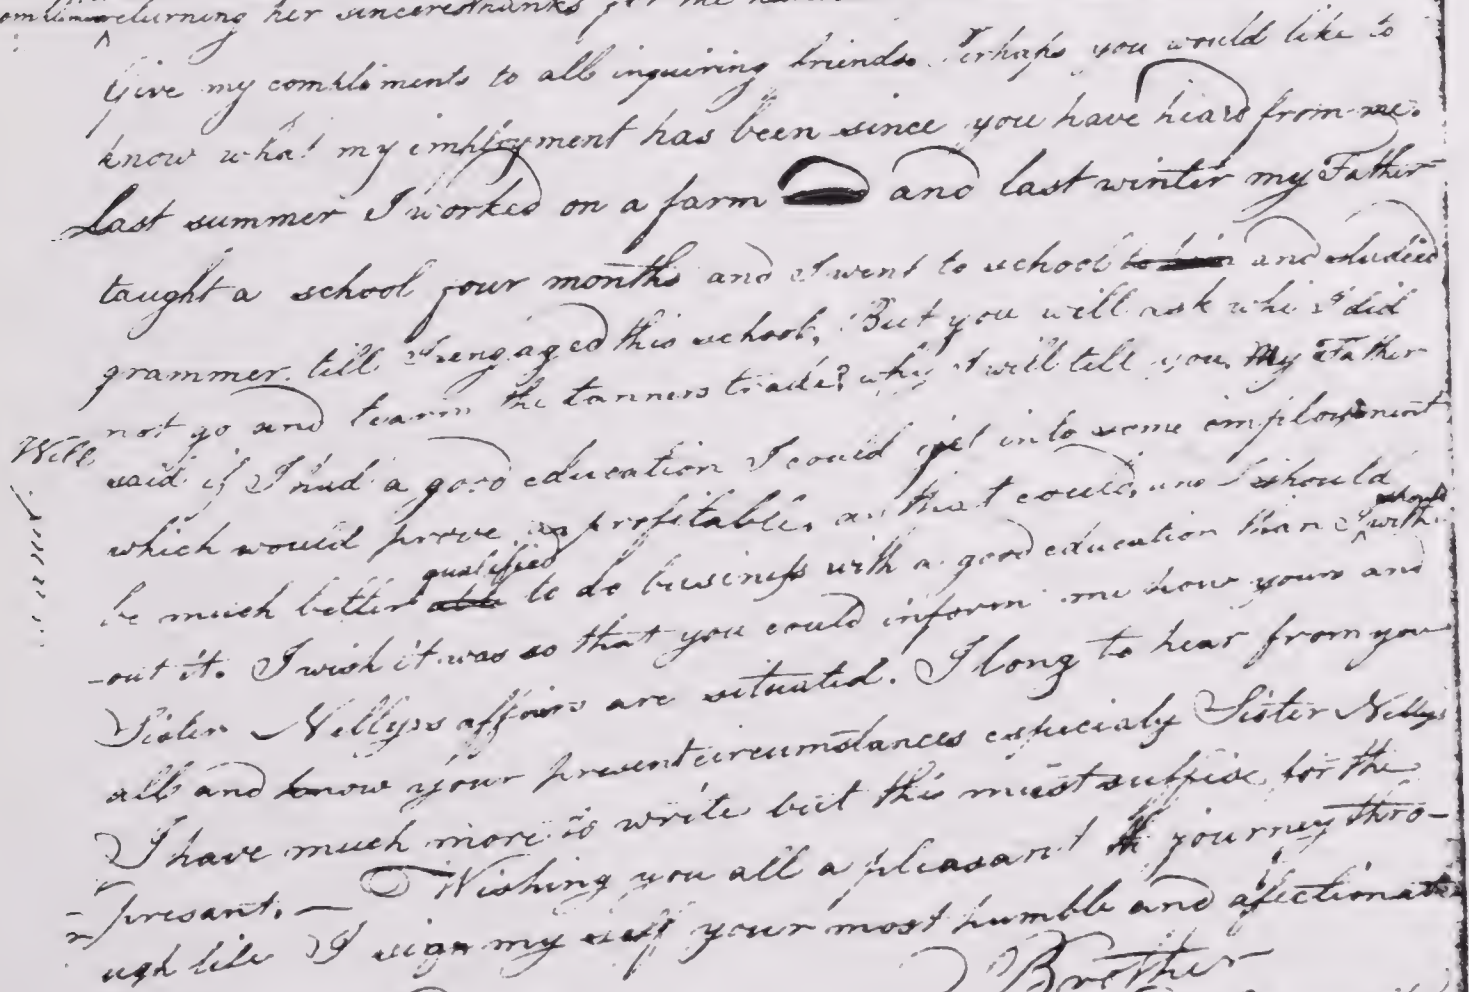 returning her sincere thanks for the
Give my compliments to all inquiring friends. Perhaps you would like to
know what my employment has been since you have heard from me.
Last summer I worked on a farm and last winter my Father
taught a school four months and I went to school and studied
grammer till I engaged this school. But you will ask whi I did
not go and learn the tanners trade? why I will tell you. My Father
Will
said if I had a good education I could get into some employment
which would prove as profitable as that could, and I should
be much better qualified to do business with a good education than I should with
-out it. I wish it was so that you could inform me how yours and
Sister Nellys affairs are situated. I long to hear from you
all and know your present circumstances especialy Sister Nellys
I have much more to write but this must suffise for the
presant. — Wishing you all a pleasant journey thro-
ugh life I sign my self your most humble and afectionate
Brother